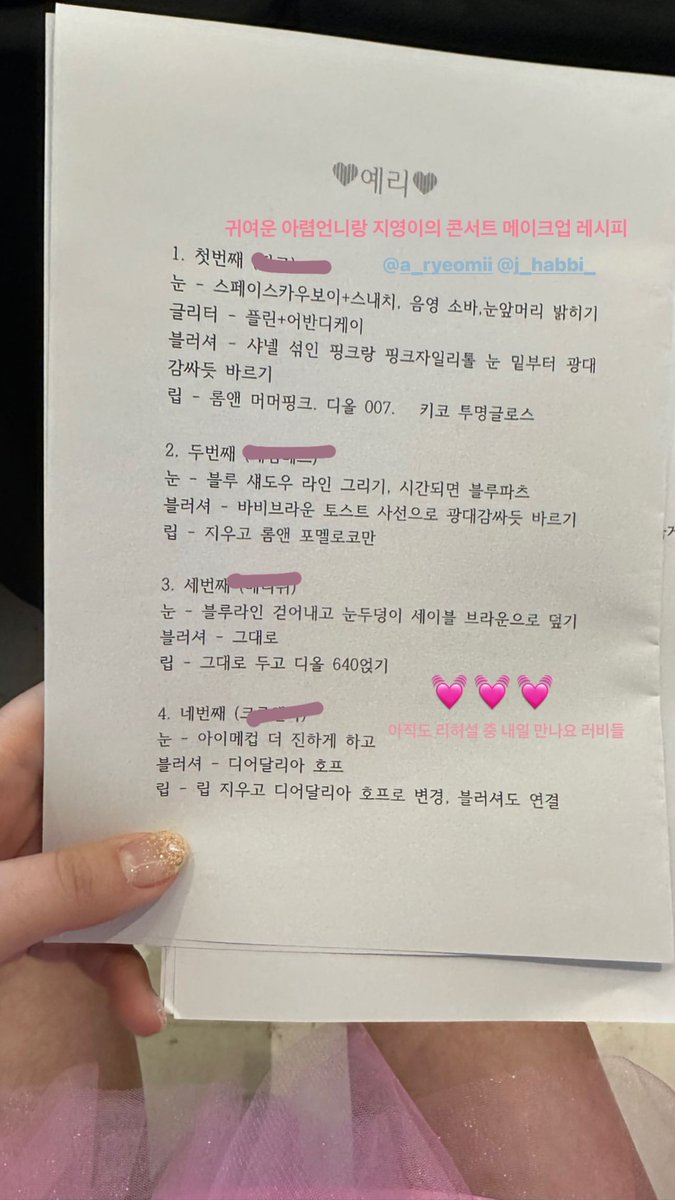 ♥예리♥
귀여운 아렴언니랑 지영이의 콘서트 메이크업 레시피
1. 첫번째
@a_ryeomii @j_habbi_
눈 - 스페이스카우보이+스내치, 음영 소바,눈앞머리 밝히기
글리터 - 플린+어반디케이
블러셔 - 샤넬 섞인 핑크랑 핑크자일리톨 눈 밑부터 광대
감싸듯 바르기
립 - 롬앤 머머핑크. 디올 007. 키코 투명글로스
2. 두번째
눈 - 블루 섀도우 라인 그리기, 시간되면 블루파츠
블러셔 - 바비브라운 토스트 사선으로 광대감싸듯 바르기
립 - 지우고 롬앤 포멜로코만
3. 세번째
눈 - 블루라인 걷어내고 눈두덩이 세이블 브라운으로 덮기
블러셔 - 그대로
립 - 그대로 두고 디올 640얹기
4. 네번째
아직도 리허설 중 내일 만나요 러비들
눈 - 아이메컵 더 진하게 하고
블러셔 - 디어달리아 호프
립 - 립 지우고 디어달리아 호프로 변경, 블러셔도 연결